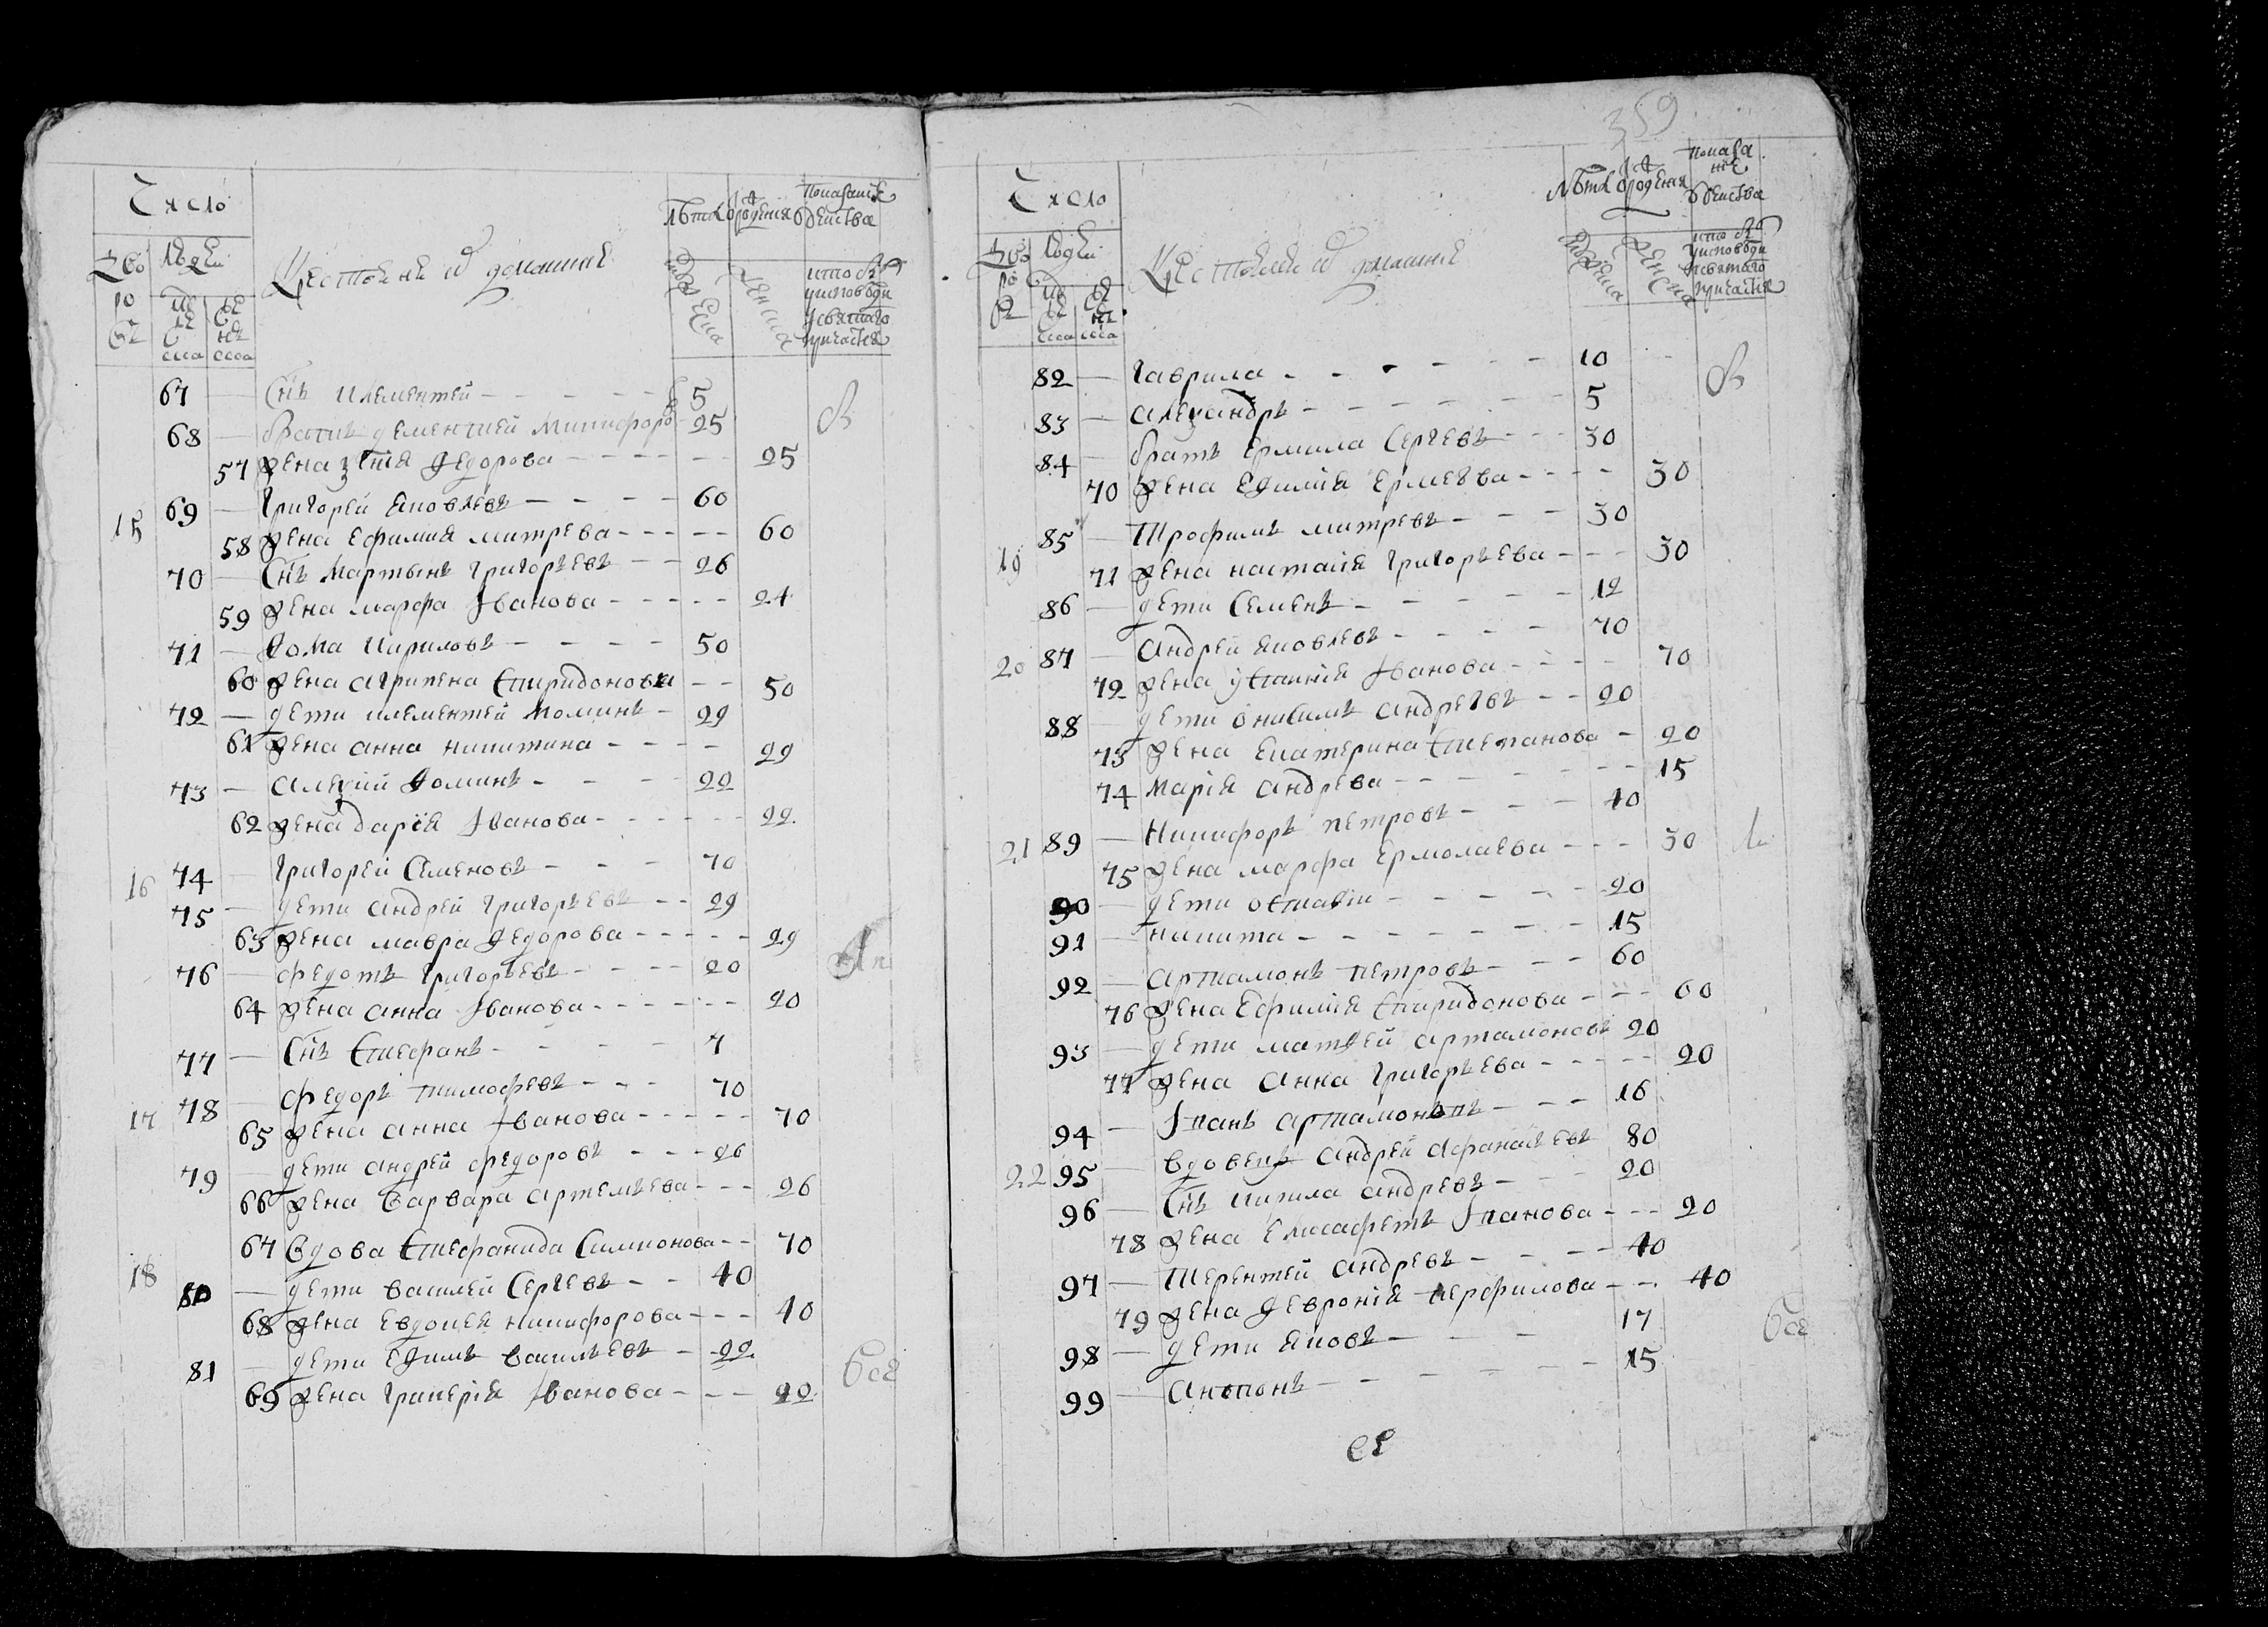 Число
Дво ро въ
людей
Крестьяне и домашние
Лѣта о рождения
67 — Снъ Клементей — — — 5
68 — братъ Дементией Никифоро 25
57 жена Федорова — — — 25
15 69 — Григорей Яковлевъ — — — 60
58 жена Ефимия митрева — — — 60
70 — Снъ Мартынъ Григорьевъ — — 26
59 жена марфа Иванова — — — 24
71 — Фома Кириловъ — — — 50
60 жена агрипена Спиридонова — — 50
72 — дети клементей Фоминъ — 29
61 жена анна никитина — — — 29
73 — алеѯий Фоминъ — — — 22
62 жена дарїя Иванова — — — 22
16 74 — Григорей Семеновъ — — — 70
75 — дети андрей григорьевъ — — 29
63 жена мавра Федорова — — — 29
76 — федотъ Григорьевъ — — — 20
64 жена анна Иванова — — — 20
77 — Снъ Стефанъ — — — 7
17 78 — федоръ тимофевъ — — — 70
65 жена анна Иванова — — — 70
79 — дети андрей федоровъ — — — 26
66 жена Варвара артемьева — — — 26
18 67 вдова Стефанида Симионова — — 70
80 — дети василей Сергевъ — — 40
68 жена Евдокея никифорова — — — 40
81 — дети Ефимъ васильевъ — 22
69 жена Гликерїя Иванова — — — 22
все
359
Число
Дво ро въ
людей
Крестьяне и домашние
Лѣта о рождения
82 — Гаврила — — — 10
83 — алеѯандръ — — — 5
84 — братъ Ермила Сергевъ — — — 30
70 жена Ефимия Ермеева — — — 30
19 85 — Трофимъ митревъ — — — 30
71 жена настасия Григорьева — — — 30
86 — дети Семенъ — — — 12
20 87 — андрей яковлевъ — — — 70
72 жена устиния Иванова — — — 70
88 — дети онисимъ андреевъ — — 20
73 жена Екатерина Степанова — 20
74 марїя андрева — — — 15
21 89 — Никифоръ петровъ — — — 40
75 жена марфа Ермолаева — — — 30
90 — дети остафiи — — — 20
91 — никита — — — 15
92 — артамонъ петровъ — — — 60
76 жена Ефимия Спиридонова — — — 60
93 — дети матвей артамоновъ 20
77 жена анна Григорьева — — — 20
94 — Иванъ артамоновъ — — — 16
22 95 — вдовецъ андрей афанасьевъ 80
96 — Снъ кирила андревъ — — — 20
78 жена Елисафетъ Иванова — — — 20
97 — терентей андревъ — — — 40
79 жена Феврония перфилова — — — 40
98 — дети яковъ — — — 17
99 — антонъ — — — 15
все